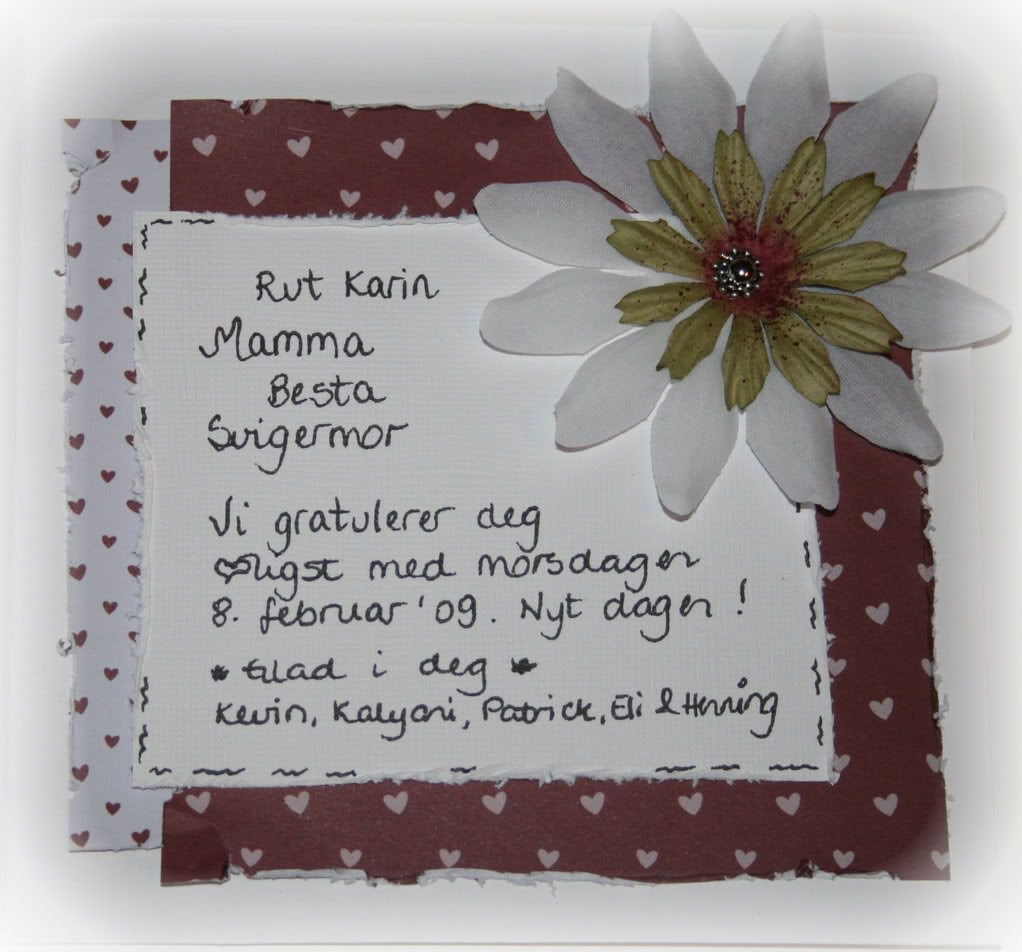 Rut Karin
Mamma
Besta
Svigermor
Vi gratulerer deg
♡ligst med morsdagen
8. februar '09. Nyt dagen!
* Glad i deg *
Kevin, Kalyani, Patrick, Eli & Henning